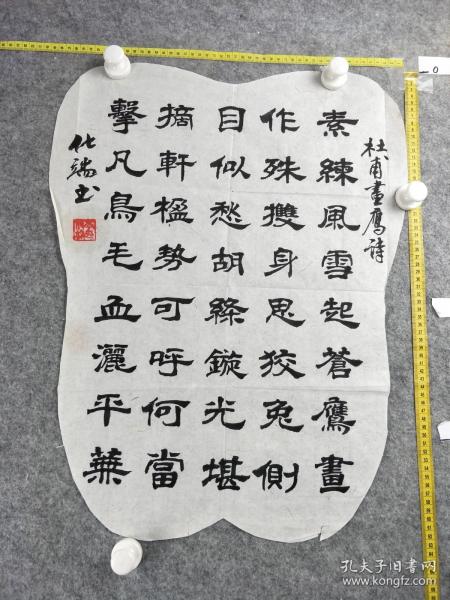 杜甫畫鷹詩
素練風雪起蒼鷹畫
作殊㩳身思狡兔側
目似愁胡絛鏇光堪
摘軒楹勢可呼何當
擊凡鳥毛血灑平蕪
化端书
孔夫子旧书网
www.kongfz.com